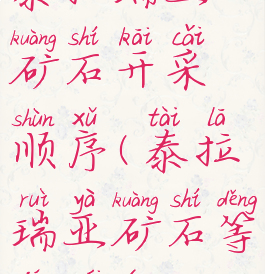 kuàng shí kāi cǎi
矿石开采
shùn xǔ tài lā
顺序(泰拉
ruì yà kuàng shí děng
瑞亚矿石等